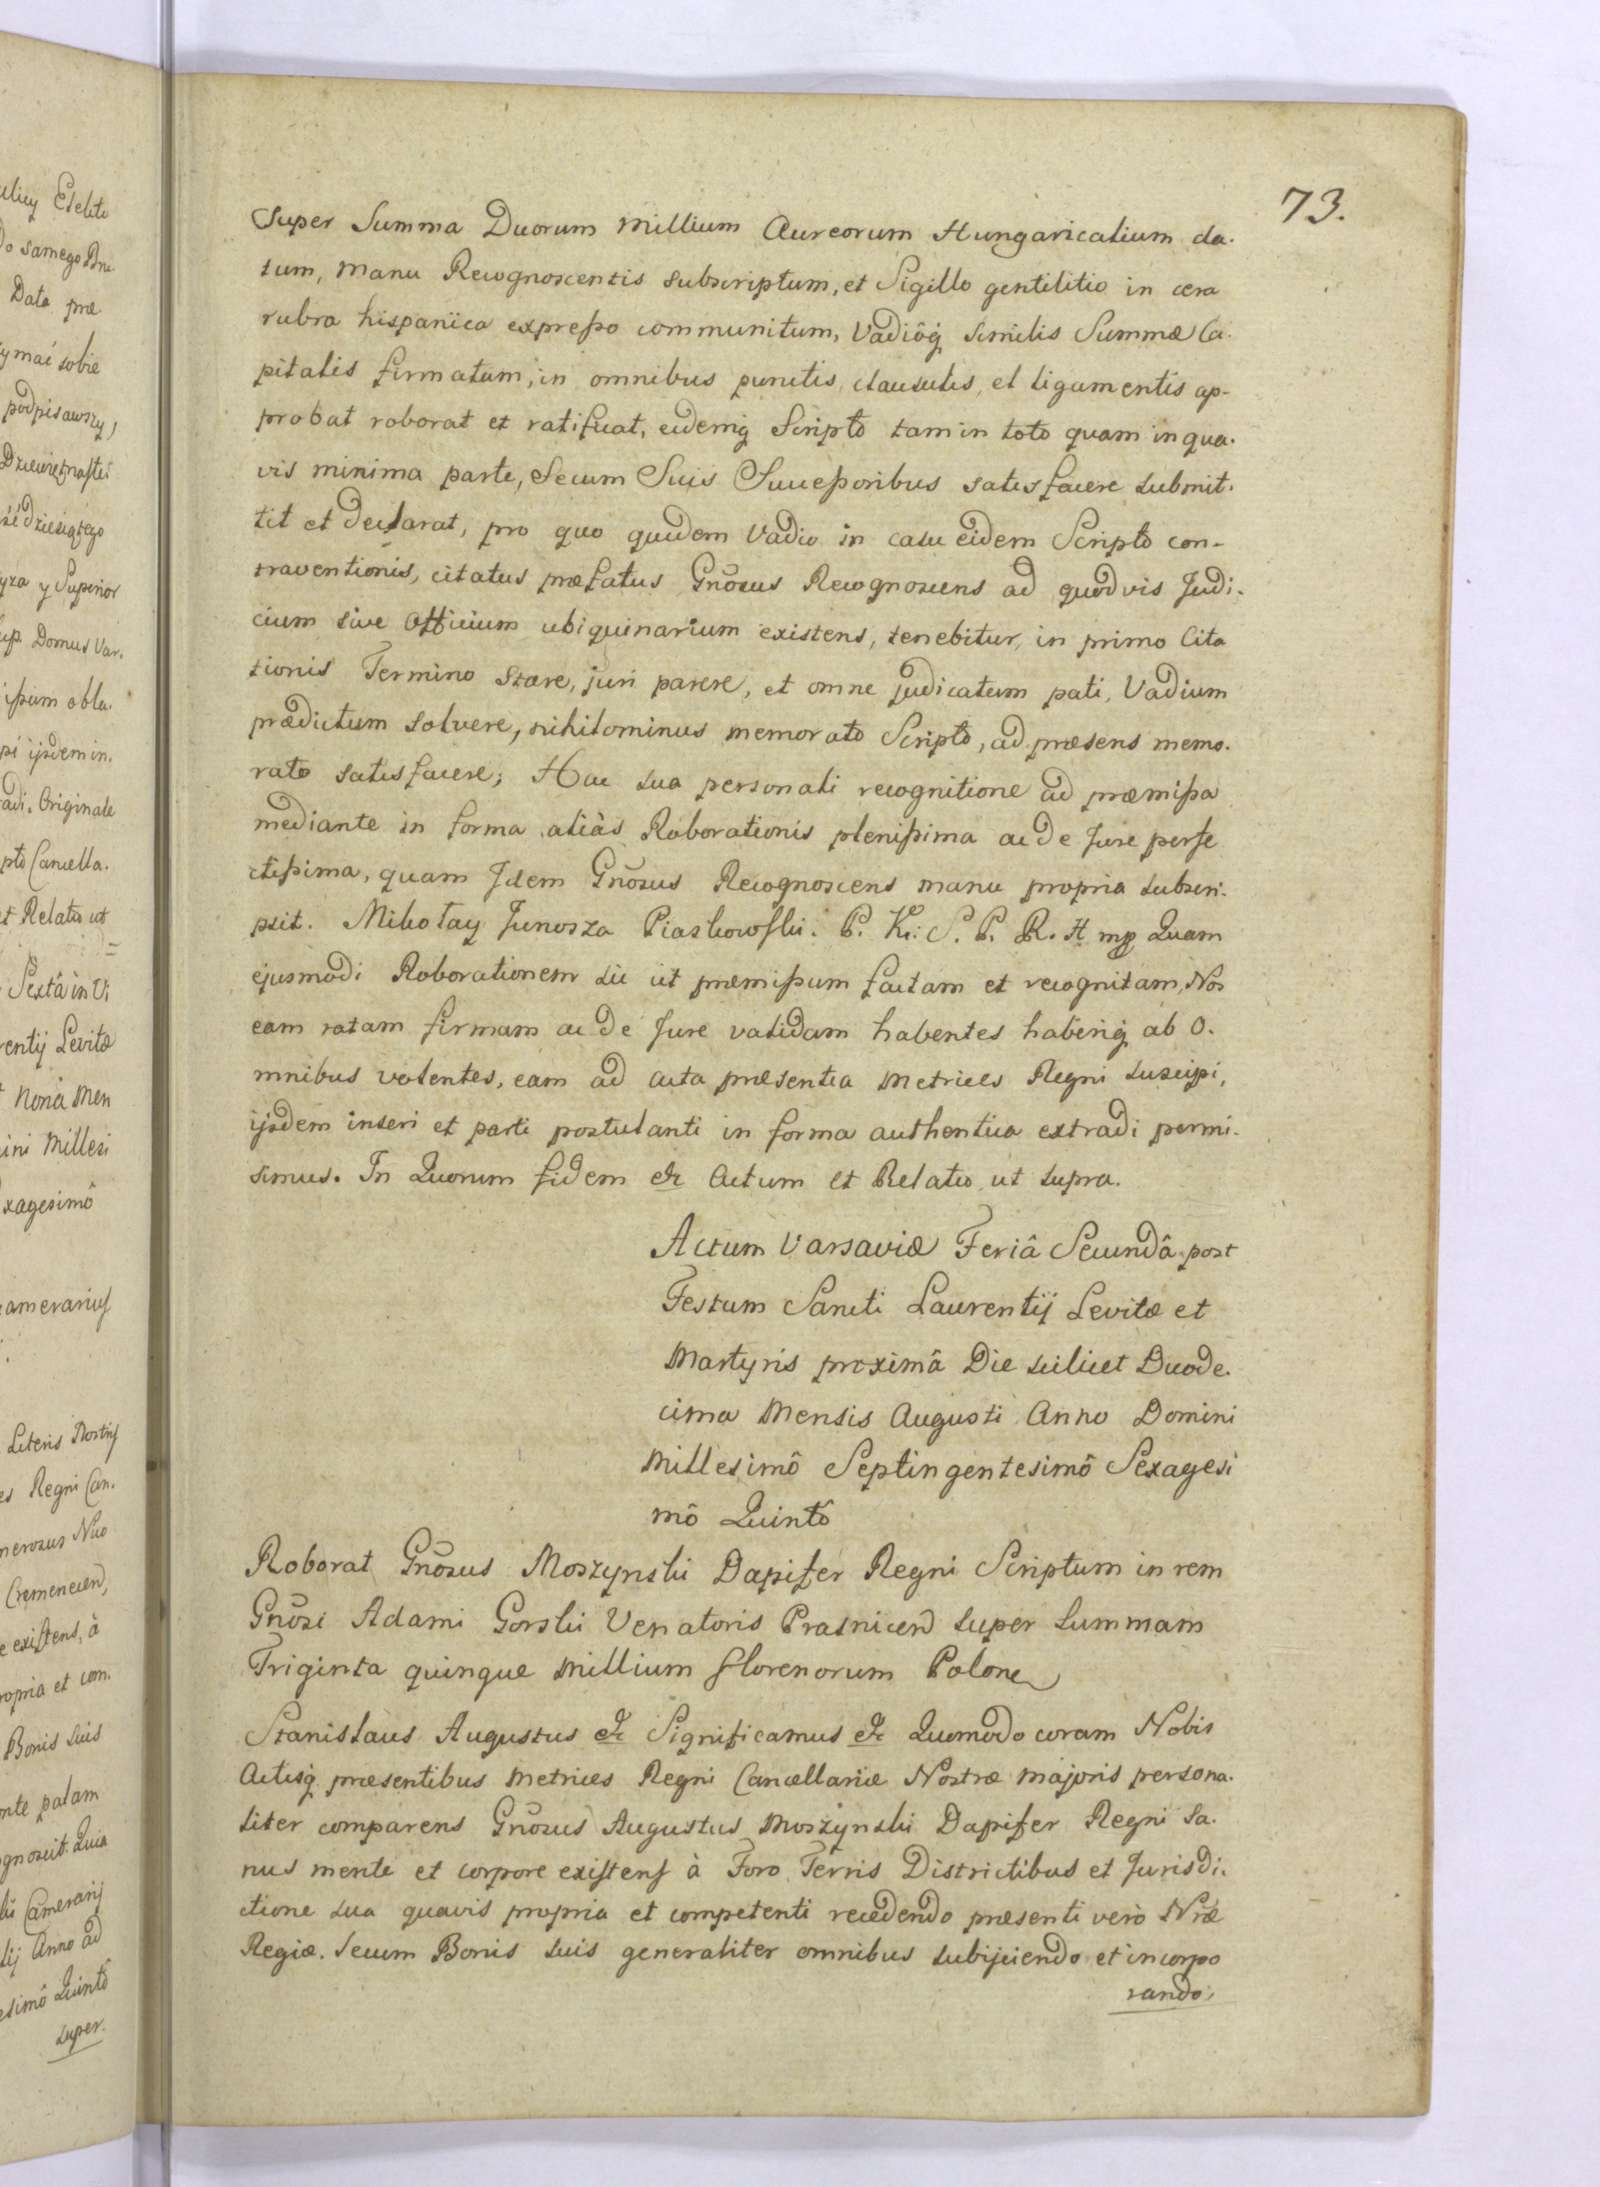 73.
Super Summa Duorum Millium Aureorum Hungaricalium da-
tum, manu Recognoscentis subscriptum, et Sigillo gentilitio in cera
rubra hispanica expresso communitum, Vadiôq́ similis Summæ Ca-
pitalis firmatum, in omnibus punctis, clausulis, et ligamentis ap-
probat roborat et ratificat, eidemq́ Scripto tam in toto quam in qua-
vis minima parte, Secum Suis Successoribus satisfacere submit-
tit et declarat, pro quo quidem Vadio in casu eidem Scripto con-
traventionis, citatus præfatus Gnõsus Recognoscens ad quodvis Judi-
cium sive Officium ubiquinarium existens, tenebitur, in primo Cita
tionis Termino stare, juri parere, et omne judicatum pati, Vadium
prædictum solvere, nihilominus memorato Scripto, ad præsens memo-
rato satisfacere; Hac sua personali recognitione ad præmissa
mediante in forma aliàs Roborationis plenissima ac de Jure perfe
ctissima, quam Idem Gnõsus Recognoscens manu propria subscri-
psit. Mikołay Junosza Piaskowski. P. K: S. P. R. H mp Quam
ejusmodi Roborationem sic ut præmissum factam et recognitam, Nos
eam ratam firmam ac de Jure validam habentes haberiq́ ab O-
mnibus volentes, eam ad acta præsentia Metrices Regni suscipi,
ijsdem inseri et parti postulanti in forma authentica extradi permi-
simus. In Quorum fidem &c Actum et Relatio ut supra.
Actum Varsaviæ Feriâ Secundâ post
Festum Sancti Laurentij Levitæ et
Martyris proximâ Die scilicet Duode-
cima Mensis Augusti Anno Domini
Millesimô Septingentesimô Sexagesi
mô Quintô
Roborat Gnõsus Moszynski Dapifer Regni Scriptum in rem
Gnõsi Adami Gorski Venatoris Prasnicen super summam
Triginta quinque Millium florenorum Polone
Stanislaus Augustus &c Significamus &c Quomodo coram Nobis
Actisq́ præsentibus Metrices Regni Cancellariæ Nostræ majoris persona-
liter comparens Gnõsus Augustus Moszynski Dapifer Regni Sa-
nus mente et corpore existens à Foro Terris Districtibus et Jurisdi-
ctione sua quavis propria et competenti recedendo præsenti verò Nræ
Regiæ. Secum Bonis suis generaliter omnibus subijciendo et incorpo
rando,